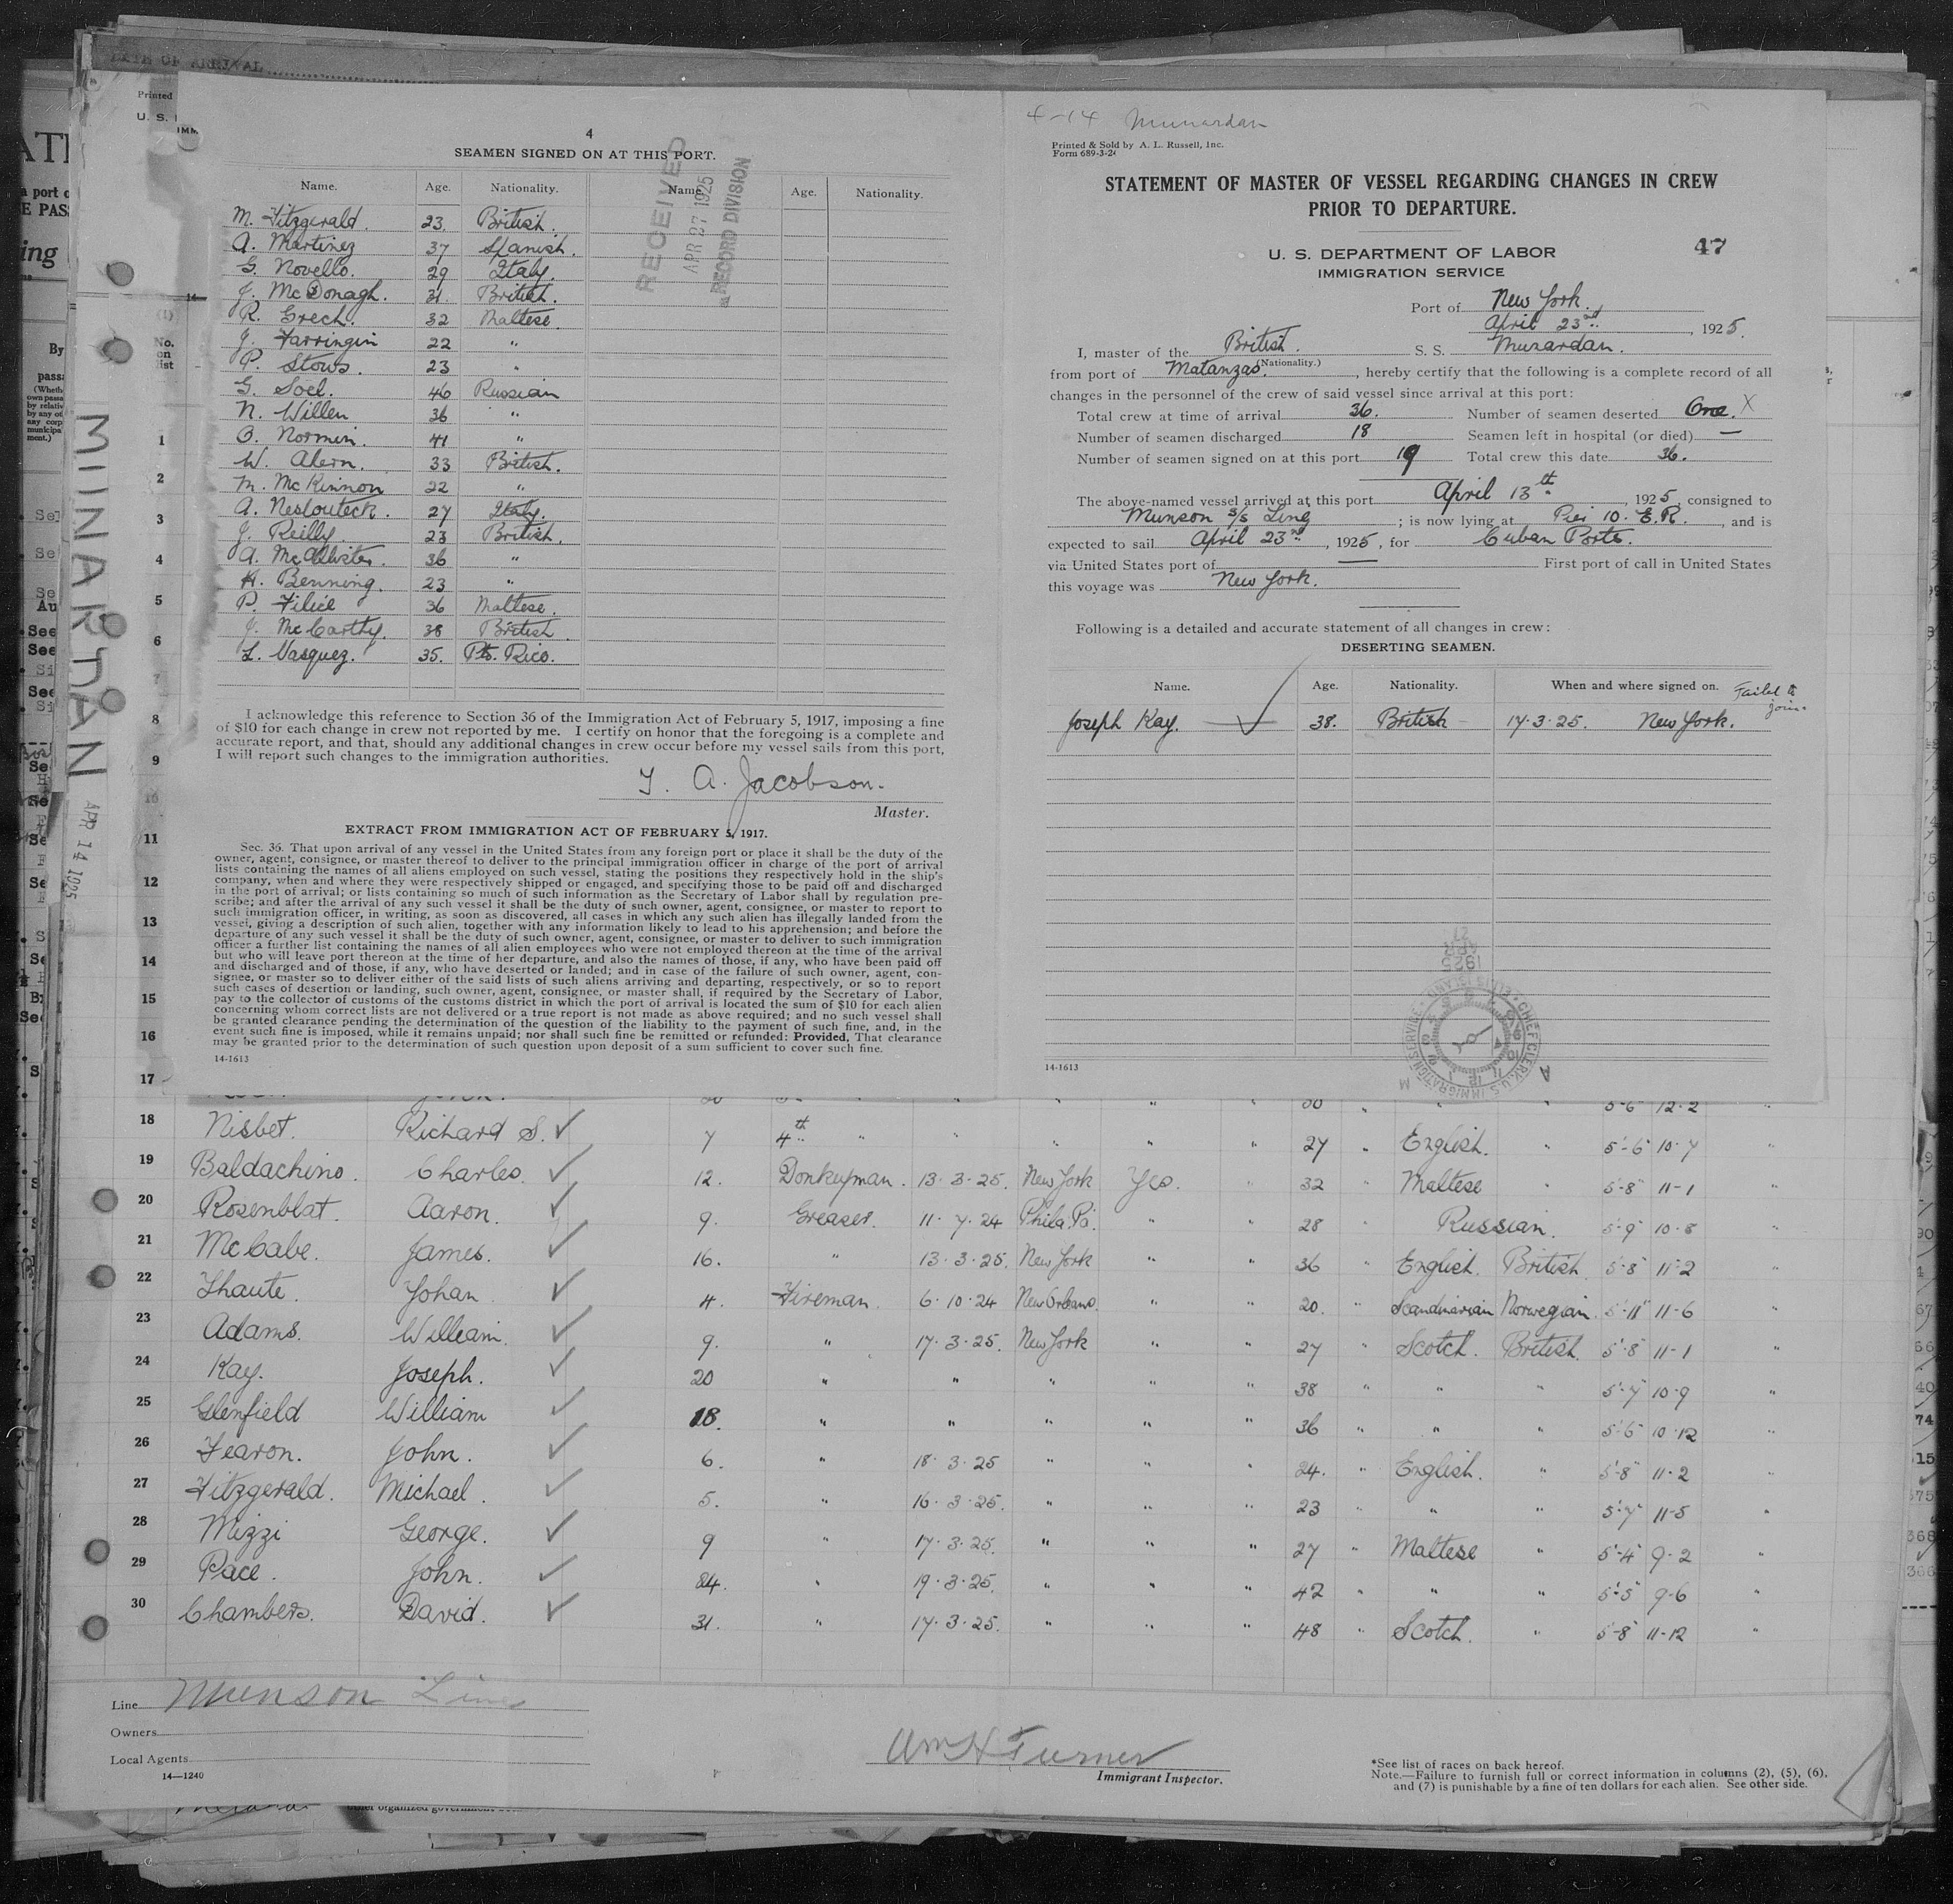 4
SEAMEN SIGNED ON AT THIS PORT.
Name. Age. Nationality. Name. Age. Nationality.
M. Fitzgerald. 23. British.
A. Martinez 37 Spanish.
G. Novello. 29 Italy.
J. McDonagh. 31. British.
R. Grech. 32 Maltese.
J. Farringin 22 "
P. Stows. 23 "
G. Soel. 46 Russian
N. Willen 36 "
O. Normin. 41 "
W. Ahern. 33 British.
M. McKinnon 22 "
A. Neslouteck. 27 Italy.
J. Reilly. 23 British.
A. McAllister. 36 "
H. Benning. 23 "
P. Filicé 36 Maltese.
J. McCarthy. 38 British.
L. Vasquez. 35. Pto. Rico.
RECEIVED
APR 27 1925
RECORD DIVISION
I acknowledge this reference to Section 36 of the Immigration Act of February 5, 1917, imposing a fine
of $10 for each change in crew not reported by me. I certify on honor that the foregoing is a complete and
accurate report, and that, should any additional changes in crew occur before my vessel sails from this port,
I will report such changes to the immigration authorities.
A. Jacobson.
Master.
EXTRACT FROM IMMIGRATION ACT OF FEBRUARY 5, 1917.
Sec. 36. That upon arrival of any vessel in the United States from any foreign port or place it shall be the duty of the
owner, agent, consignee, or master thereof to deliver to the principal immigration officer in charge of the port of arrival
lists containing the names of all aliens employed on such vessel, stating the positions they respectively hold in the ship's
company, when and where they were respectively shipped or engaged, and specifying those to be paid off and discharged
in the port of arrival; or lists containing so much of such information as the Secretary of Labor shall by regulation pre-
scribe; and after the arrival of any such vessel it shall be the duty of such owner, agent, consignee, or master to report to
such immigration officer, in writing, as soon as discovered, all cases in which any such alien has illegally landed from the
vessel, giving a description of such alien, together with any information likely to lead to his apprehension; and before the
departure of any such vessel it shall be the duty of such owner, agent, consignee, or master to deliver to such immigration
officer a further list containing the names of all alien employees who were not employed thereon at the time of the arrival
but who will leave port thereon at the time of her departure, and also the names of those, if any, who have been paid off
and discharged and of those, if any, who have deserted or landed; and in case of the failure of such owner, agent, con-
signee, or master so to deliver either of the said lists of such aliens arriving and departing, respectively, or so to report
such cases of desertion or landing, such owner, agent, consignee, or master shall, if required by the Secretary of Labor,
pay to the collector of customs of the customs district in which the port of arrival is located the sum of $10 for each alien
concerning whom correct lists are not delivered or a true report is not made as above required; and no such vessel shall
be granted clearance pending the determination of the question of the liability to the payment of such fine, and, in the
event such fine is imposed, while it remains unpaid; nor shall such fine be remitted or refunded: Provided, That clearance
may be granted prior to the determination of such question upon deposit of a sum sufficient to cover such fine.
14-1613
4-14 Munardan
Printed & Sold by A. L. Russell, Inc.
Form 689-3-24
STATEMENT OF MASTER OF VESSEL REGARDING CHANGES IN CREW
PRIOR TO DEPARTURE.
U. S. DEPARTMENT OF LABOR
47
IMMIGRATION SERVICE
Port of New York.
April 23rd, 1925.
I, master of the British. S. S. Munardan.
(Nationality.)
from port of Matanzas., hereby certify that the following is a complete record of all
changes in the personnel of the crew of said vessel since arrival at this port:
Total crew at time of arrival 36. Number of seamen deserted One. X
Number of seamen discharged 18 Seamen left in hospital (or died) —
Number of seamen signed on at this port 19 Total crew this date 36.
The above-named vessel arrived at this port April 13th, 1925, consigned to
Munson S/S Line; is now lying at Pier 10. E.R., and is
expected to sail April 23rd, 1925, for Cuban Ports.
via United States port of — First port of call in United States
this voyage was New York.
Following is a detailed and accurate statement of all changes in crew:
DESERTING SEAMEN.
Name. Age. Nationality. When and where signed on. Failed to join.
Joseph Kay. 38. British 17.3.25. New York.
14-1613
1925
APR
27
CHIEF CLERK, U.S. IMMIGRATION SERVICE, ELLIS ISLAND
MUNARDAN
APR 14 1925
Printed
U. S.
No.
on
list
1
2
3
4
5
6
7
8
9
10
11
12
13
14
15
16
17
18 Nisbet. Richard S. 7 4th " " " " " 27 " English. " 5'-6" 10-7 "
19 Baldachino. Charles. 12. Donkeyman. 13.3.25. New York Yes. " 32 " Maltese " 5'-8" 11-1 "
20 Rosenblat. Aaron. 9. Greaser. 11.7.24 Phila. Pa. " " 28 " Russian. 5'-9" 10-8 "
21 McCabe. James. 16. " 13.3.25. New York " " 36 " English. British. 5'-8" 11-2 "
22 Thaute. Johan 4. Fireman. 6.10.24 New Orleans. " " 20. " Scandinavian Norwegian. 5'-11" 11-6 "
23 Adams. William. 9. " 17.3.25. New York " " 27 " Scotch. British. 5'-8" 11-1 "
24 Kay. Joseph. 20 " " " " " 38 " " " 5'-7" 10-9 "
25 Glenfield William 18. " " " " " 36 " " " 5'-6" 10-12 "
26 Fearon. John. 6. " 18.3.25 " " " 24. " English. " 5'-8" 11-2 "
27 Fitzgerald. Michael. 5. " 16.3.25. " " " 23 " " " 5'-7" 11-5 "
28 Mizzi George. 9 " 17.3.25. " " " 27 " Maltese " 5'-4" 9-2 "
29 Pace. John. 24. " 19.3.25. " " " 42 " " " 5'-5" 9-6 "
30 Chambers. David. 31. " 17.3.25. " " " 48 " Scotch. " 5'-8" 11-12 "
Line Munson Line
Owners
Local Agents
14—1240
Wm H Turner
Immigrant Inspector.
*See list of races on back hereof.
Note.—Failure to furnish full or correct information in columns (2), (5), (6),
and (7) is punishable by a fine of ten dollars for each alien. See other side.